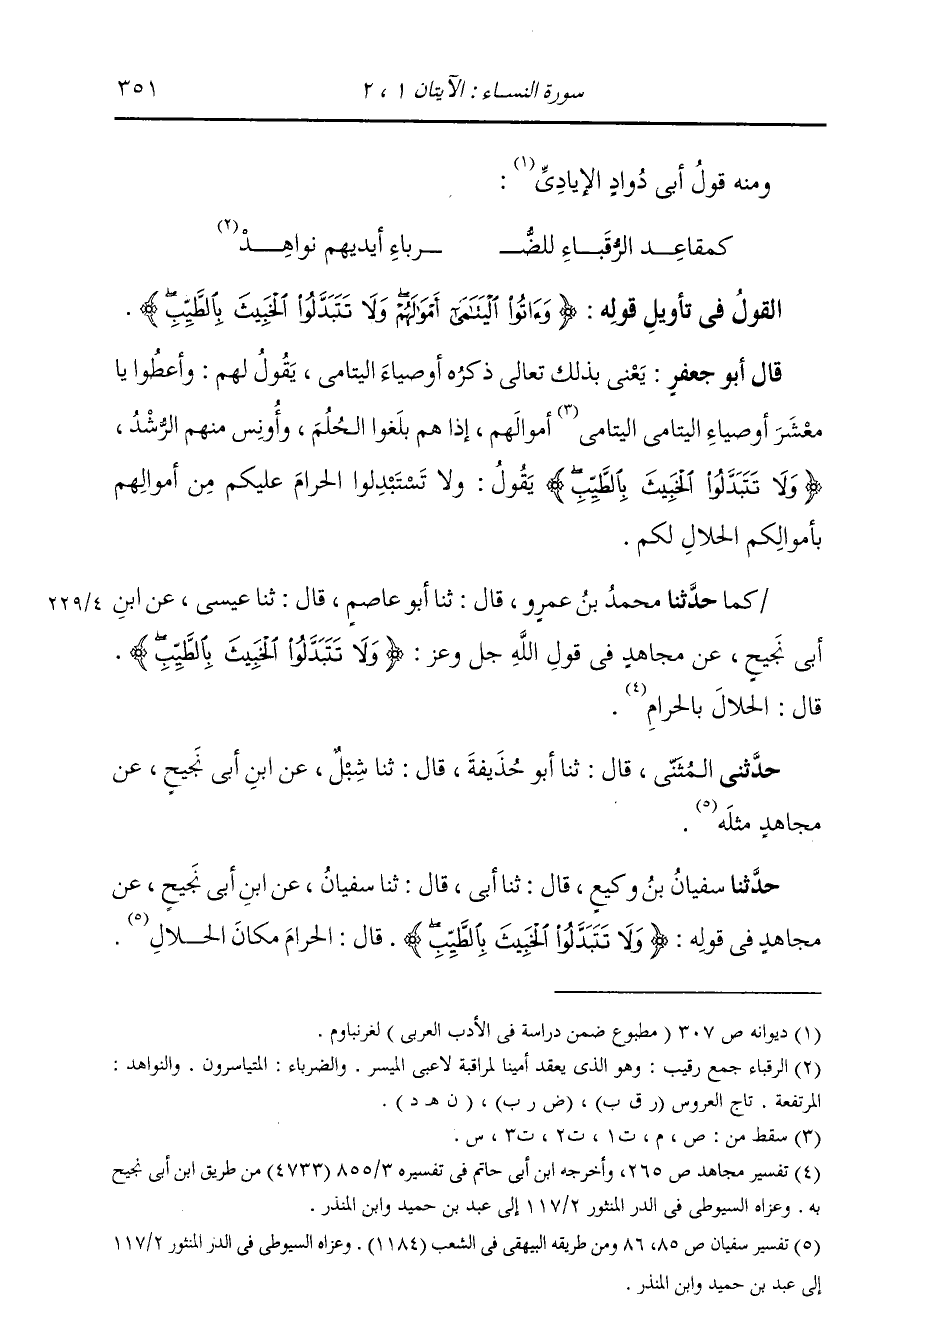 سورة النساء : الآيتان ١ ، ٢ ٣٥١
ومنه قولُ أبى دُوادٍ الإيادِىِّ(١) :
كمقاعِـد الرُّقَبـاءِ للضُّـ ـرباءِ أيديهم نواهِـدْ(٢)
القولُ فى تأويلِ قولِه : ﴿ وَءَاتُوا۟ ٱلْيَتَـٰمَىٰٓ أَمْوَٰلَهُمْ ۖ وَلَا تَتَبَدَّلُوا۟ ٱلْخَبِيثَ بِٱلطَّيِّبِ ۖ ﴾ .
قال أبو جعفرٍ : يَعْنى بذلك تعالى ذكرُه أوصياءَ اليتامى ، يَقُولُ لهم : وأعطُوا يا
معْشَرَ أوصياءِ اليتامى اليتامى(٣) أموالَهم ، إذا هم بلَغوا الحُلُمَ ، وأُونِس منهم الرُّشْدُ ،
﴿ وَلَا تَتَبَدَّلُوا۟ ٱلْخَبِيثَ بِٱلطَّيِّبِ ۖ ﴾ يَقُولُ : ولا تَسْتَبْدِلوا الحرامَ عليكم مِن أموالِهم
بأموالِكم الحلالِ لكم .
/كما حدَّثنا محمدُ بنُ عمرٍو ، قال : ثنا أبو عاصمٍ ، قال : ثنا عيسى ، عن ابنِ ٢٢٩/٤
أبى نَجيحٍ ، عن مجاهدٍ فى قولِ اللَّهِ جل وعز : ﴿ وَلَا تَتَبَدَّلُوا۟ ٱلْخَبِيثَ بِٱلطَّيِّبِ ۖ ﴾ .
قال : الحلالَ بالحرامِ(٤) .
حدَّثنى المُثَنّى ، قال : ثنا أبو حُذَيفةَ ، قال : ثنا شِبْلٌ ، عن ابنِ أبى نَجيحٍ ، عن
مجاهدٍ مثلَه(٥) .
حدَّثنا سفيانُ بنُ وكيعٍ ، قال : ثنا أبى ، قال : ثنا سفيانُ ، عن ابنِ أبى نَجيحٍ ، عن
مجاهدٍ فى قولِه : ﴿ وَلَا تَتَبَدَّلُوا۟ ٱلْخَبِيثَ بِٱلطَّيِّبِ ۖ ﴾ . قال : الحرامَ مكانَ الحـلالِ(٥) .
(١) ديوانه ص ٣٠٧ ( مطبوع ضمن دراسة فى الأدب العربى ) لغرنباوم .
(٢) الرقباء جمع رقيب : وهو الذى يعقد أمينا لمراقبة لاعبى الميسر . والضرباء : المتياسرون . والنواهد :
المرتفعة . تاج العروس (ر ق ب) ، (ض ر ب) ، ( ن هـ د ) .
(٣) سقط من : ص ، م ، ت١ ، ت٢ ، ت٣ ، س .
(٤) تفسير مجاهد ص ٢٦٥، وأخرجه ابن أبى حاتم فى تفسيره ٨٥٥/٣ (٤٧٣٣) من طريق ابن أبى نجيح
به . وعزاه السيوطى فى الدر المنثور ١١٧/٢ إلى عبد بن حميد وابن المنذر .
(٥) تفسير سفيان ص ٨٥، ٨٦ ومن طريقه البيهقى فى الشعب (١١٨٤) . وعزاه السيوطى فى الدر المنثور ١١٧/٢
إلى عبد بن حميد وابن المنذر .